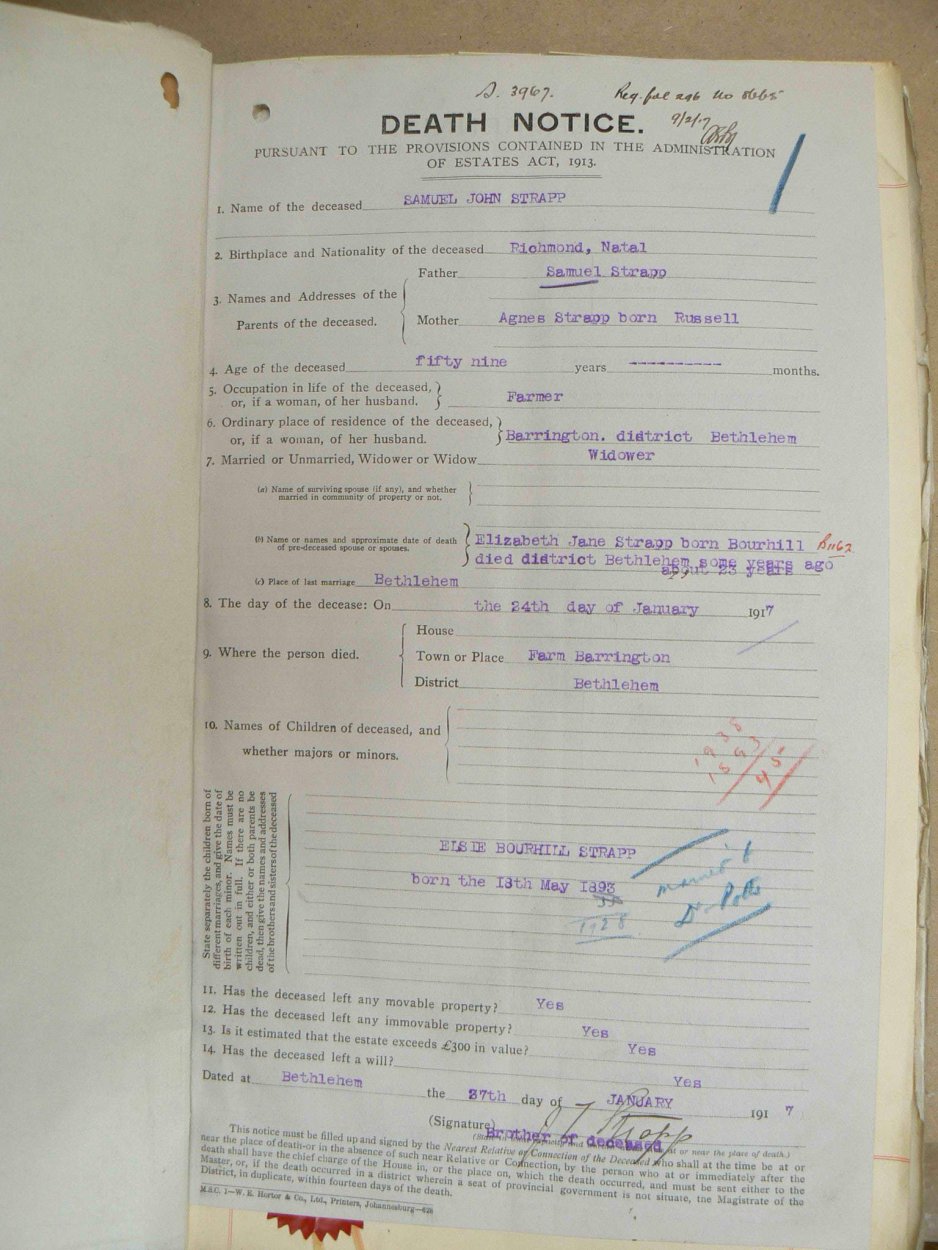 S. 3967.
Reg. fol 296 No 8665
9/2/17
DEATH NOTICE.
PURSUANT TO THE PROVISIONS CONTAINED IN THE ADMINISTRATION
OF ESTATES ACT, 1913.
1. Name of the deceased SAMUEL JOHN STRAPP
2. Birthplace and Nationality of the deceased Richmond, Natal
3. Names and Addresses of the
Parents of the deceased.
Father Samuel Strapp
Mother Agnes Strapp born Russell
4. Age of the deceased fifty nine years ---------- months.
5. Occupation in life of the deceased,
or, if a woman, of her husband. Farmer
6. Ordinary place of residence of the deceased,
or, if a woman, of her husband. Barrington. district Bethlehem
7. Married or Unmarried, Widower or Widow Widower
(a) Name of surviving spouse (if any), and whether
married in community of property or not.
(b) Name or names and approximate date of death
of pre-deceased spouse or spouses.
Elizabeth Jane Strapp born Bourhill B1162
died district Bethlehem some years ago
about 23 years
(c) Place of last marriage Bethlehem
8. The day of the decease: On the 24th day of January 1917
9. Where the person died.
House
Town or Place Farm Barrington
District Bethlehem
10. Names of Children of deceased, and
whether majors or minors.
1938
1893
45
State separately the children born of
different marriages, and give the date of
birth of each minor. Names must be
written out in full. If there are no
children, and either or both parents be
dead, then give the names and addresses
of the brothers and sisters of the deceased
ELSIE BOURHILL STRAPP
born the 13th May 1893
35
1928
married to
Dr
11. Has the deceased left any movable property? Yes
12. Has the deceased left any immovable property? Yes
13. Is it estimated that the estate exceeds £300 in value? Yes
14. Has the deceased left a will? Yes
Dated at Bethlehem the 27th day of JANUARY 1917
(Signature) J Strapp
Brother of deceased
at or near the place of death.)
This notice must be filled up and signed by the Nearest Relative or Connection of the Deceased who shall at the time be at or
near the place of death-or in the absence of such near Relative or Connection, by the person who at or immediately after the
death shall have the chief charge of the House in, or the place on, which the death occurred, and must be sent either to the
Master, or, if the death occurred in a district wherein a seat of provincial government is not situate, the Magistrate of the
District, in duplicate, within fourteen days of the death.
M.S.C. 1—W. E. Hortor & Co., Ltd., Printers, Johannesburg—626